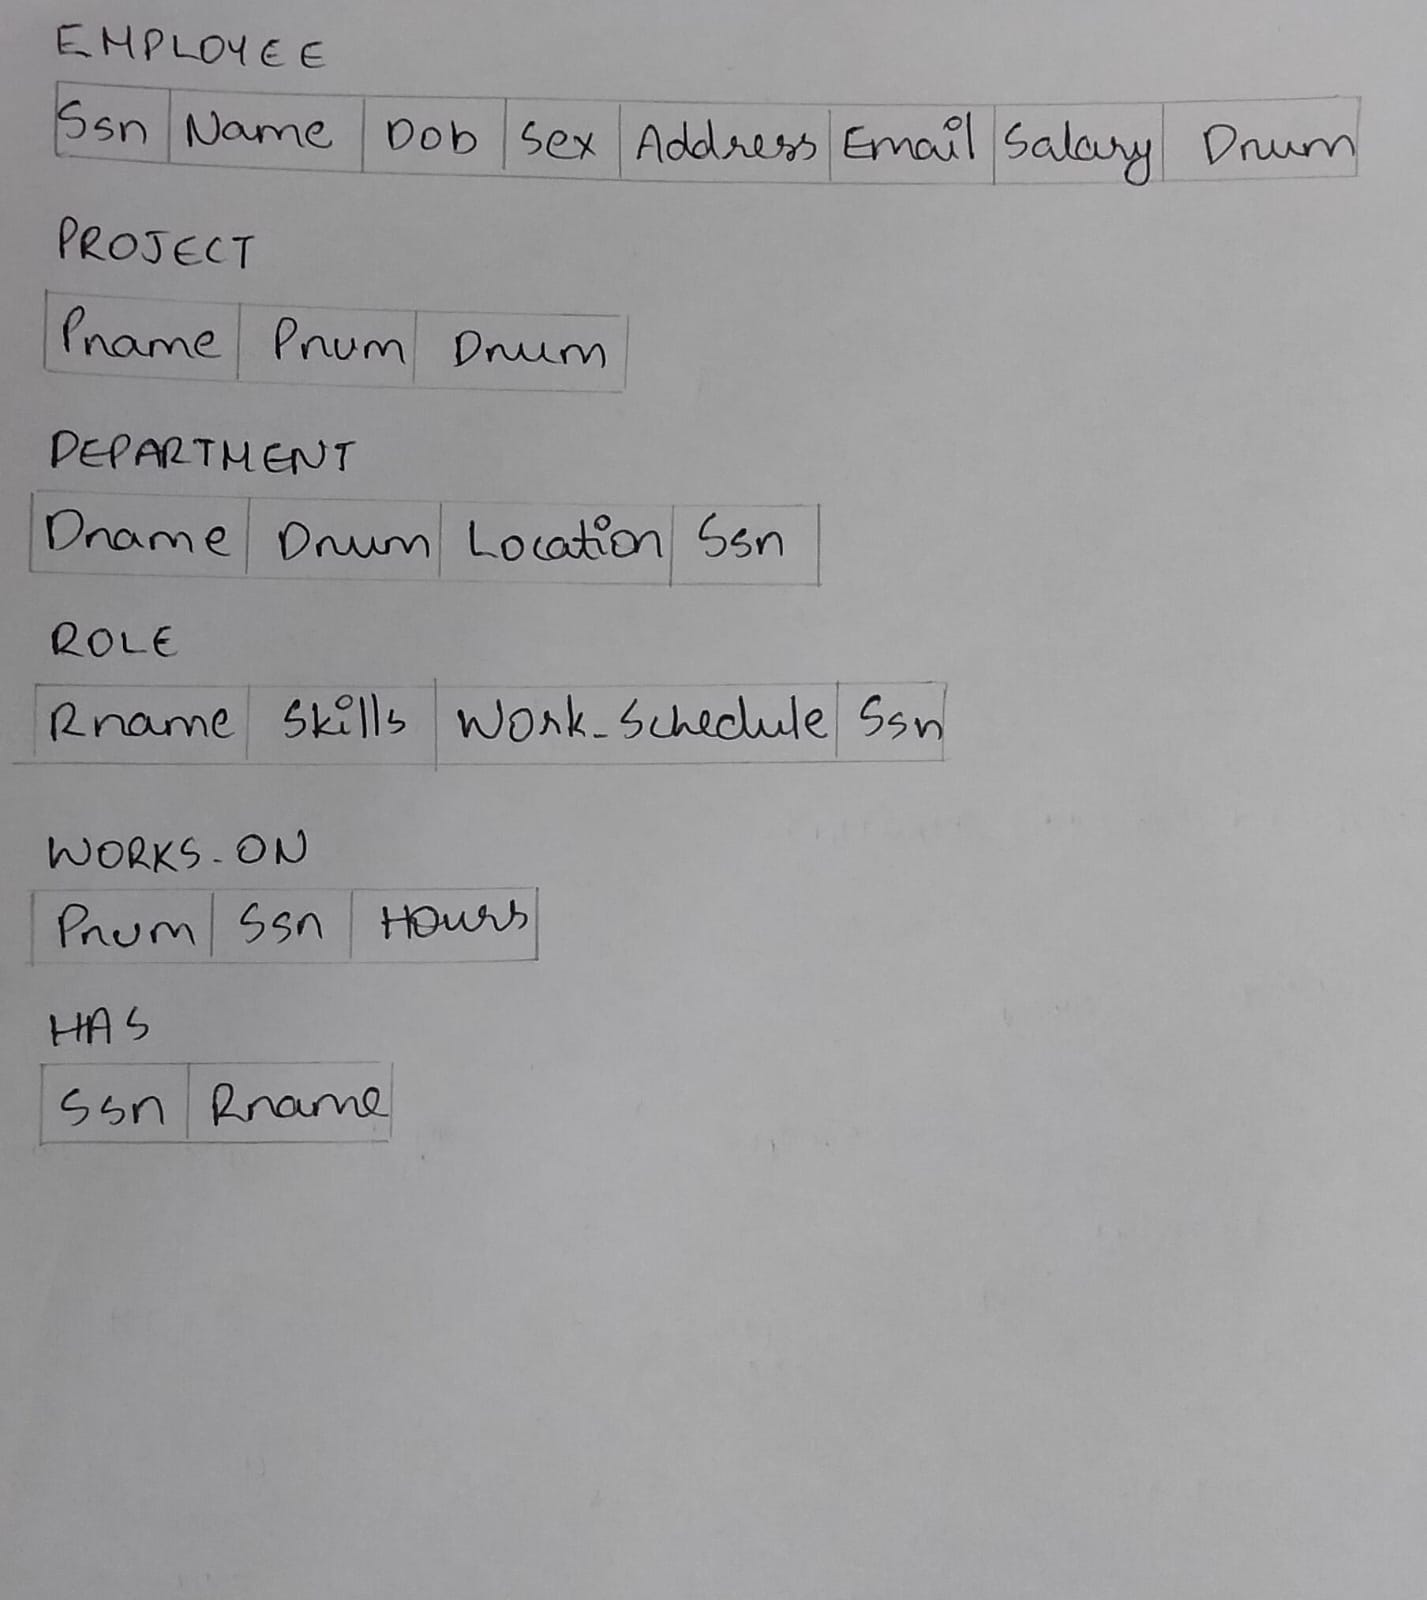 EMPLOYEE
Ssn Name Dob Sex Address Email Salary Dnum
PROJECT
Pname Pnum Dnum
DEPARTMENT
Dname Dnum Location Ssn
ROLE
Rname Skills Work_Schedule Ssn
WORKS-ON
Pnum Ssn Hours
HAS
Ssn Rname